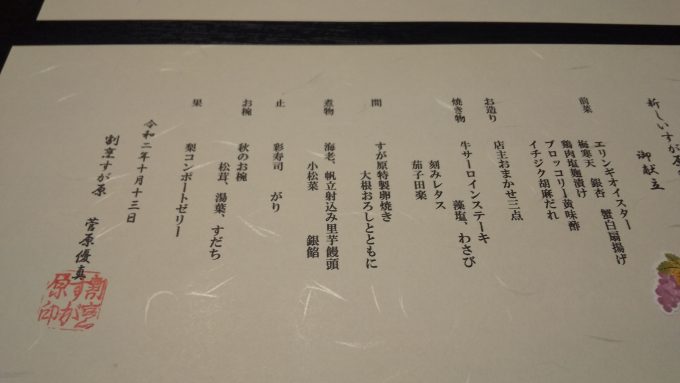 新しいすが原の
御献立
前菜
エリンギオイスター
梅寒天 銀杏 蟹白扇揚げ
鶏肉塩麹漬け
ブロッコリー黄味酢
イチジク胡麻だれ
お造り
店主おまかせ三点
焼き物
牛サーロインステーキ
藻塩、わさび
刻みレタス
茄子田楽
間
すが原特製卵焼き
大根おろしとともに
煮物
海老、帆立射込み里芋饅頭
小松菜 銀餡
止
彩寿司 がり
お椀
秋のお椀
松茸、湯葉、すだち
果
梨コンポートゼリー
令和二年十月十三日
割烹すが原 菅原優真
割烹
すが
原印